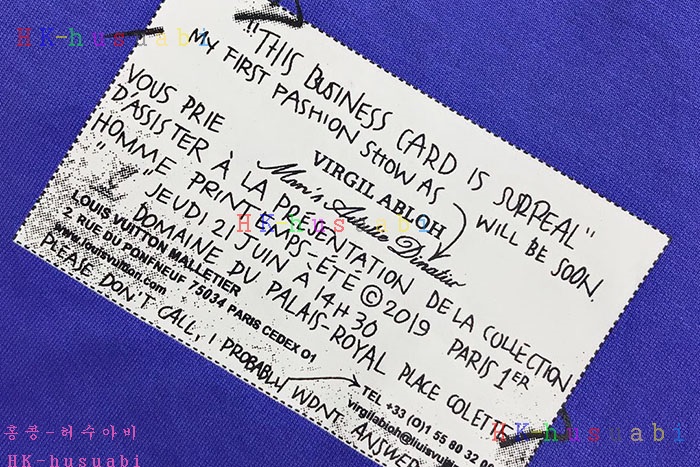 HK-husuabi
"THIS BUSINESS CARD IS SURREAL"
MY FIRST FASHION SHOW AS
WILL BE SOON.
VIRGIL ABLOH
Men's Artistic Director
VOUS PRIE
D'ASSISTER À LA PRÉSENTATION DE LA COLLECTION
HOMME PRINTEMPS-ÉTÉ © 2019 PARIS 1ER
"JEUDI 21 JUIN À 14H30
HK-husuabi
DOMAINE DU PALAIS-ROYAL PLACE COLETTE
LOUIS VUITTON MALLETIER
2 RUE DU PONFNEUF 75034 PARIS CEDEX 01
www.louisvuitton.com
PLEASE DON'T CALL, I PROBABLY WON'T ANSWER
TEL +33 (0)1 55 80 32
virgilabloh@
HK-husuabi
홍콩-허수아비
HK-husuabi